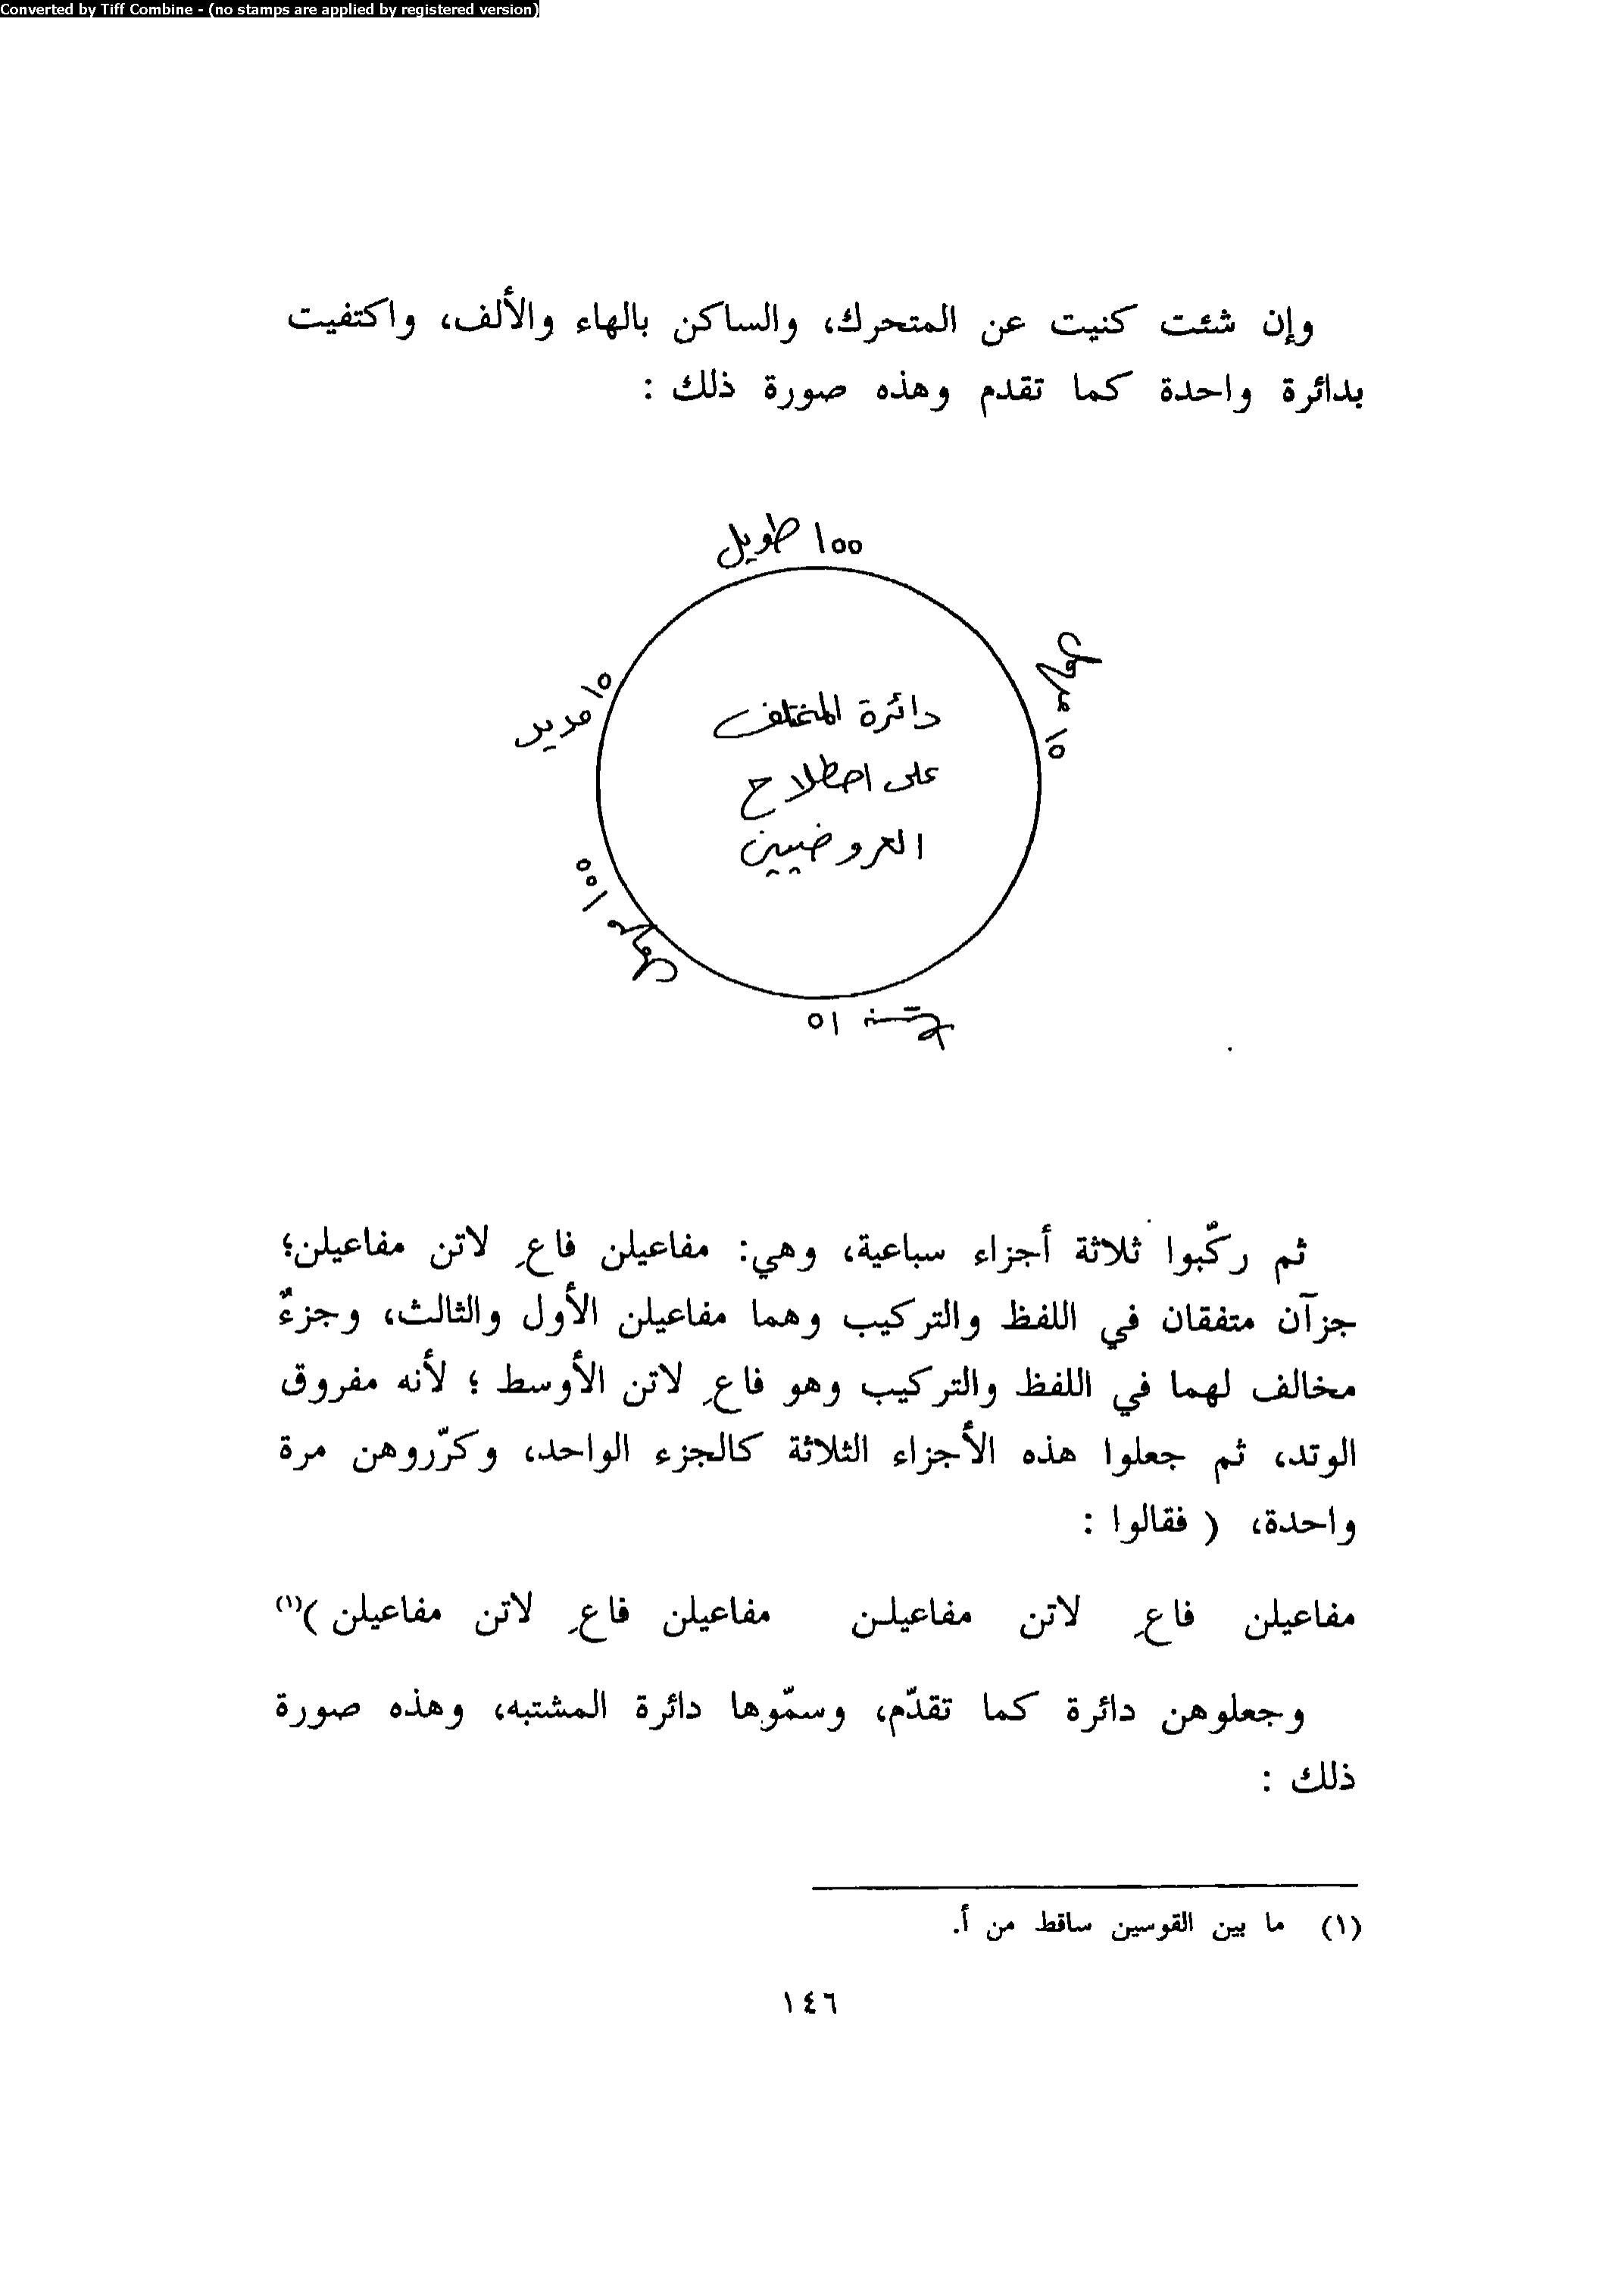 Converted by Tiff Combine - (no stamps are applied by registered version)
وإن شئت كنيت عن المتحرك، والساكن بالهاء والألف، واكتفيت
بدائرة واحدة كما تقدم وهذه صورة ذلك :
ه ه ا طويل
ه ا مديد
ه ه ا
ه ا
ه ا
دائرة المختلف
على اصطلاح
العروضيين
ثم ركّبوا ثلاثة أجزاء سباعية، وهي: مفاعيلن فاعِ لاتن مفاعيلن؛
جزآن متفقان في اللفظ والتركيب وهما مفاعيلن الأول والثالث، وجزءٌ
مخالف لهما في اللفظ والتركيب وهو فاعِ لاتن الأوسط ؛ لأنه مفروق
الوتد، ثم جعلوا هذه الأجزاء الثلاثة كالجزء الواحد، وكرّروهن مرة
واحدة، ( فقالوا :
مفاعيلن فاعِ لاتن مفاعيلـن مفاعيلن فاعِ لاتن مفاعيلن )(١)
وجعلوهن دائرة كما تقدّم، وسمّوها دائرة المشتبه، وهذه صورة
ذلك :
(١) ما بين القوسين ساقط من أ.
١٤٦